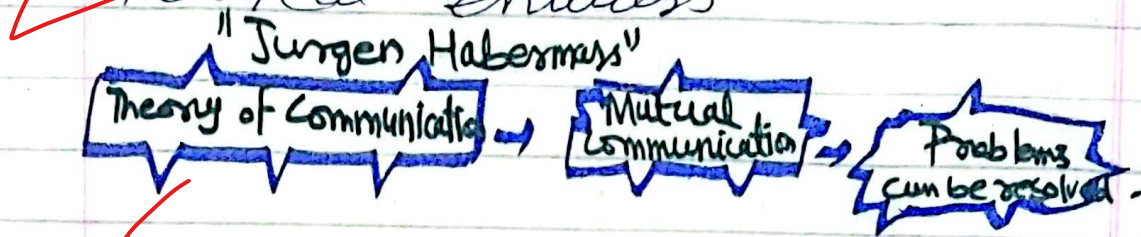 "Jurgen Habermass"
Theory of Communicatio
Mutual
Communication
Problems
can be resolved.